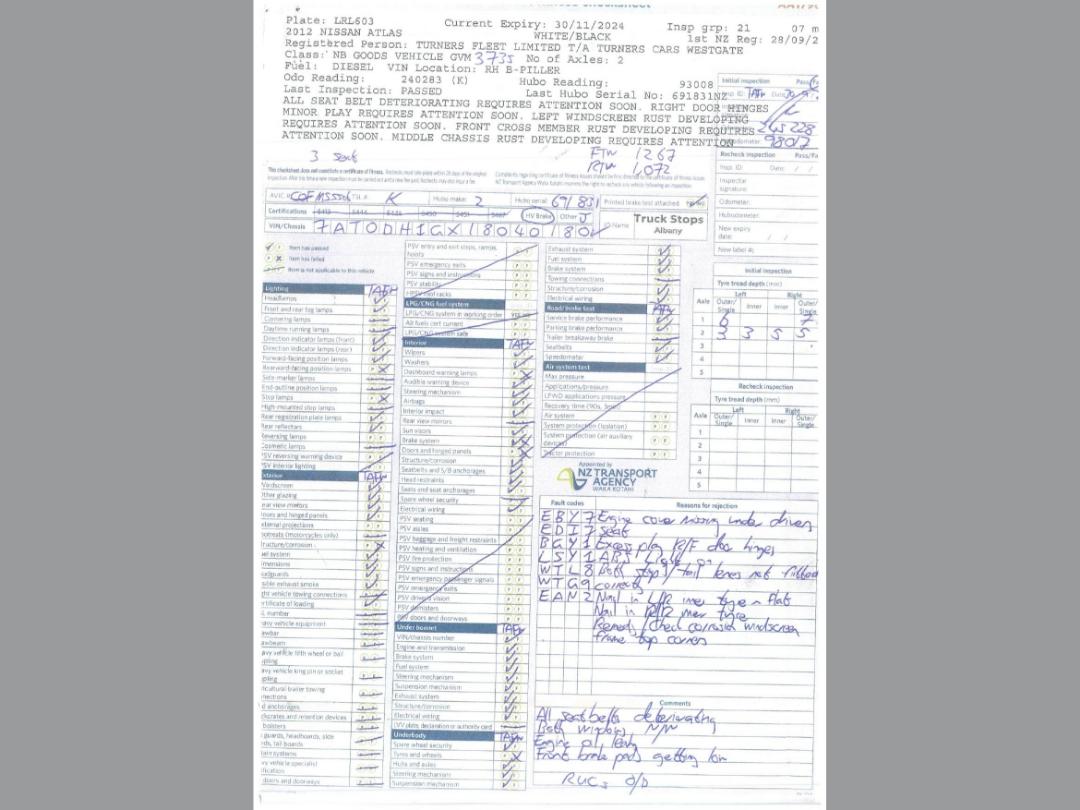 Plate: LRL603 Current Expiry: 30/11/2024 Insp grp: 21 07 m
2012 NISSAN ATLAS WHITE/BLACK 1st NZ Reg: 28/09/2
Registered Person: TURNERS FLEET LIMITED T/A TURNERS CARS WESTGATE
Class: NB GOODS VEHICLE GVM 3735 No of Axles: 2
Fuel: DIESEL VIN Location: RH B-PILLER
Odo Reading: 240283 (K) Hubo Reading: 93008
Last Inspection: PASSED Last Hubo Serial No: 691831NZ
ALL SEAT BELT DETERIORATING REQUIRES ATTENTION SOON. RIGHT DOOR HINGES
MINOR PLAY REQUIRES ATTENTION SOON. LEFT WINDSCREEN RUST DEVELOPING
REQUIRES ATTENTION SOON. FRONT CROSS MEMBER RUST DEVELOPING REQUIRES
ATTENTION SOON. MIDDLE CHASSIS RUST DEVELOPING REQUIRES ATTENTION
Initial inspection Pass/Fa
245228
98017
3 seat
FTW 1267
RTW 1,072
Recheck inspection Pass/Fa
Insp. ID: Date: / /
Inspector
signature:
Odometer:
Hubodometer:
New expiry
date: / /
New label #:
This checksheet does not constitute a certificate of fitness.
Hubo make: 2 Hubo serial: 691831 Printed brake test attached
Certifications HV Brake Other J
VIN/Chassis 7AT0DH1GX18040180
Truck Stops
Albany
Item has passed
Item has failed
Item is not applicable to this vehicle
Lighting
Headlamps
Front and rear fog lamps
Cornering lamps
Daytime running lamps
Direction indicator lamps (front)
Direction indicator lamps (rear)
Forward-facing position lamps
Rearward-facing position lamps
Side-marker lamps
End-outline position lamps
Stop lamps
High-mounted stop lamps
Rear registration plate lamps
Rear reflectors
Reversing lamps
Cosmetic lamps
PSV reversing warning device
PSV interior lighting
Windscreen
Other glazing
Rear view mirrors
Doors and hinged panels
External projections
(motorcycles only)
Structure/corrosion
Fuel system
Dimensions
Mudguards
Visible exhaust smoke
Light vehicle towing connections
Certificate of loading
number
Heavy vehicle equipment
Drawbar
Drawbeam
Heavy vehicle fifth wheel or ball
coupling
Heavy vehicle king pin or socket
coupling
Agricultural trailer towing
connections
anchorages
retention devices
bolsters
guards, headboards, side
boards, tail boards
systems
Heavy vehicle specialist
doors and doorways
PSV entry and exit steps, ramps,
hoists
PSV emergency exits
PSV signs and instructions
PSV stability
PSV roof racks
LPG/CNG fuel system
LPG/CNG system in working order
Alt fuels cert current
LPG/CNG system safe
Interior
Wipers
Washers
Dashboard warning lamps
Audible warning device
Steering mechanism
Airbags
Interior impact
Rear view mirrors
Sun visors
Brake system
Doors and hinged panels
Structure/corrosion
Seatbelts and S/B anchorages
Head restraints
Seats and seat anchorages
Spare wheel security
Electrical wiring
PSV seating
PSV aisles
PSV baggage and freight restraints
PSV heating and ventilation
PSV fire protection
PSV signs and instructions
PSV emergency passenger signals
PSV emergency exits
PSV driver's vision
PSV dismisters
PSV doors and doorways
Underbonnet
VIN/chassis number
Engine and transmission
Brake system
Fuel system
Steering mechanism
Suspension mechanism
Exhaust system
Structure/corrosion
Electrical wiring
LVV plate, declaration or authority card
Underbody
Spare wheel security
Tyres and wheels
Hubs and axles
Steering mechanism
Suspension mechanism
Exhaust system
Fuel system
Brake system
Towing connections
Structure/corrosion
Electrical wiring
Road/brake test
Service brake performance
Parking brake performance
Trailer breakaway brake
Seatbelts
Speedometer
Air system test
Max pressure
Applications/pressure
LPWD applications pressure
Recovery time (90s, 3min)
Air system
System protection (isolation)
System protection (air auxiliary
devices)
Tractor protection
Appointed by
NZ TRANSPORT
AGENCY
WAKA KOTAHI
Initial inspection
Tyre tread depth (mm)
Left Right
Axle Outer/Single Inner Inner Outer/Single
1 6 7
2 3 3 5 5
3
4
5
Recheck inspection
Tyre tread depth (mm)
Left Right
Axle Outer/Single Inner Inner Outer/Single
1
2
3
4
5
Fault codes Reasons for rejection
EBY7 Engine cover missing under drivers
EDI7 Seat
BGY1 Excess play R/F door hinges
WTL8 Both stop/tail lenses not fitted
WTG9 correctly
EAN2 Nail in L/R2 inner tyre - flat
Nail in R/R2 inner tyre
Remedy/check corrosion windscreen
frame top corners
Comments
All seatbelts deteriorating
Engine oil leak
Front brake pads getting low
RUCs o/d